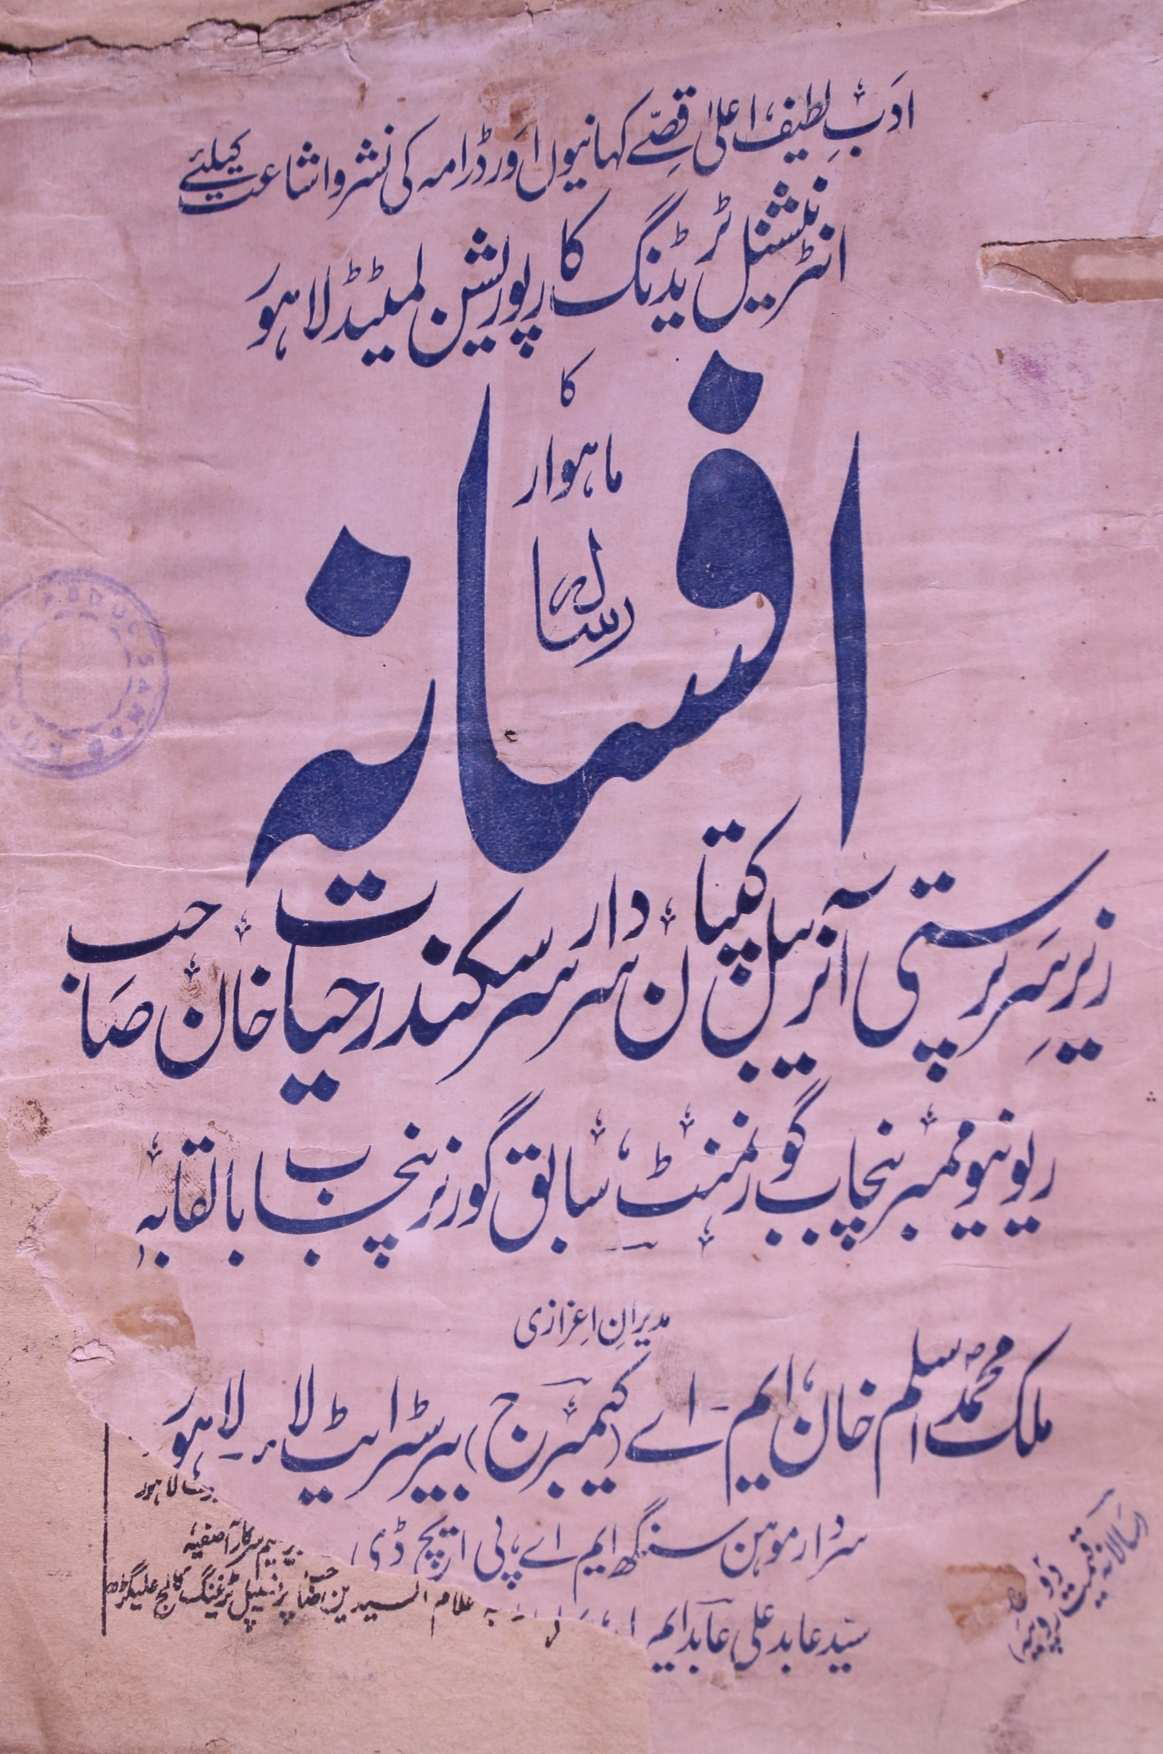 ادبِ لطیف، اعلیٰ قصّے کہانیوں اور ڈرامہ کی نشر و اشاعت کیلئے
انٹرنیشنل ٹریڈنگ کارپوریشن لمیٹڈ لاہور
کا
ماہوار
رسالہ
افسانہ
زیرِ سرپرستی آنریبل کپتان سردار سر سکندر حیات خان صاحب
ریونیو ممبر پنجاب گورنمنٹ، سابق گورنر پنجاب بالقابہ
مدیرانِ اعزازی
ملک محمد اسلم خان، ایم-اے (کیمبرج) بیرسٹر ایٹ لا۔ لاہور
سردار موہن سنگھ ایم اے، پی ایچ ڈی
سیّد عابد علی عابد ایم
لاہور
سرکار آصفیہ
غلام السیدین صاحب پرنسپل ٹریننگ کالج علیگڑھ
سالانہ قیمت
دو روپیہ